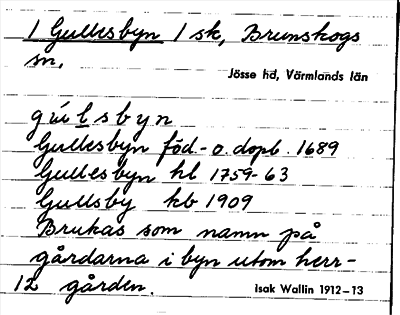 1 Gullesbyn 1 sk, Brunskogs
sn.
Jösse hd, Värmlands län
gúlsbyn
Gullesbyn föd.- o. dopb. 1689
Gullesbyn hl 1759-63
Gullsby kb 1909
Brukas som namn på
gårdarna i byn utom herr-
12 gården.
Isak Wallin 1912-13